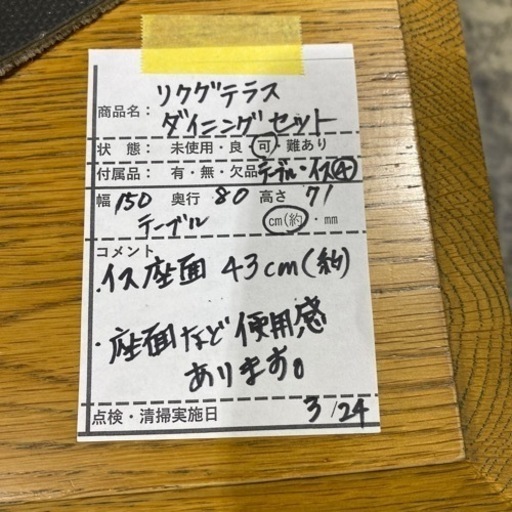 商品名: リクグテラス
ダイニングセット
状 態: 未使用・良・可・難あり
付属品: 有・無・欠品 テーブル・イス④
幅 150 奥行 80 高さ 71
テーブル cm(約)・mm
コメント
・イス座面 43cm(約)
・座面など使用感
あります。
点検・清掃実施日 3/24